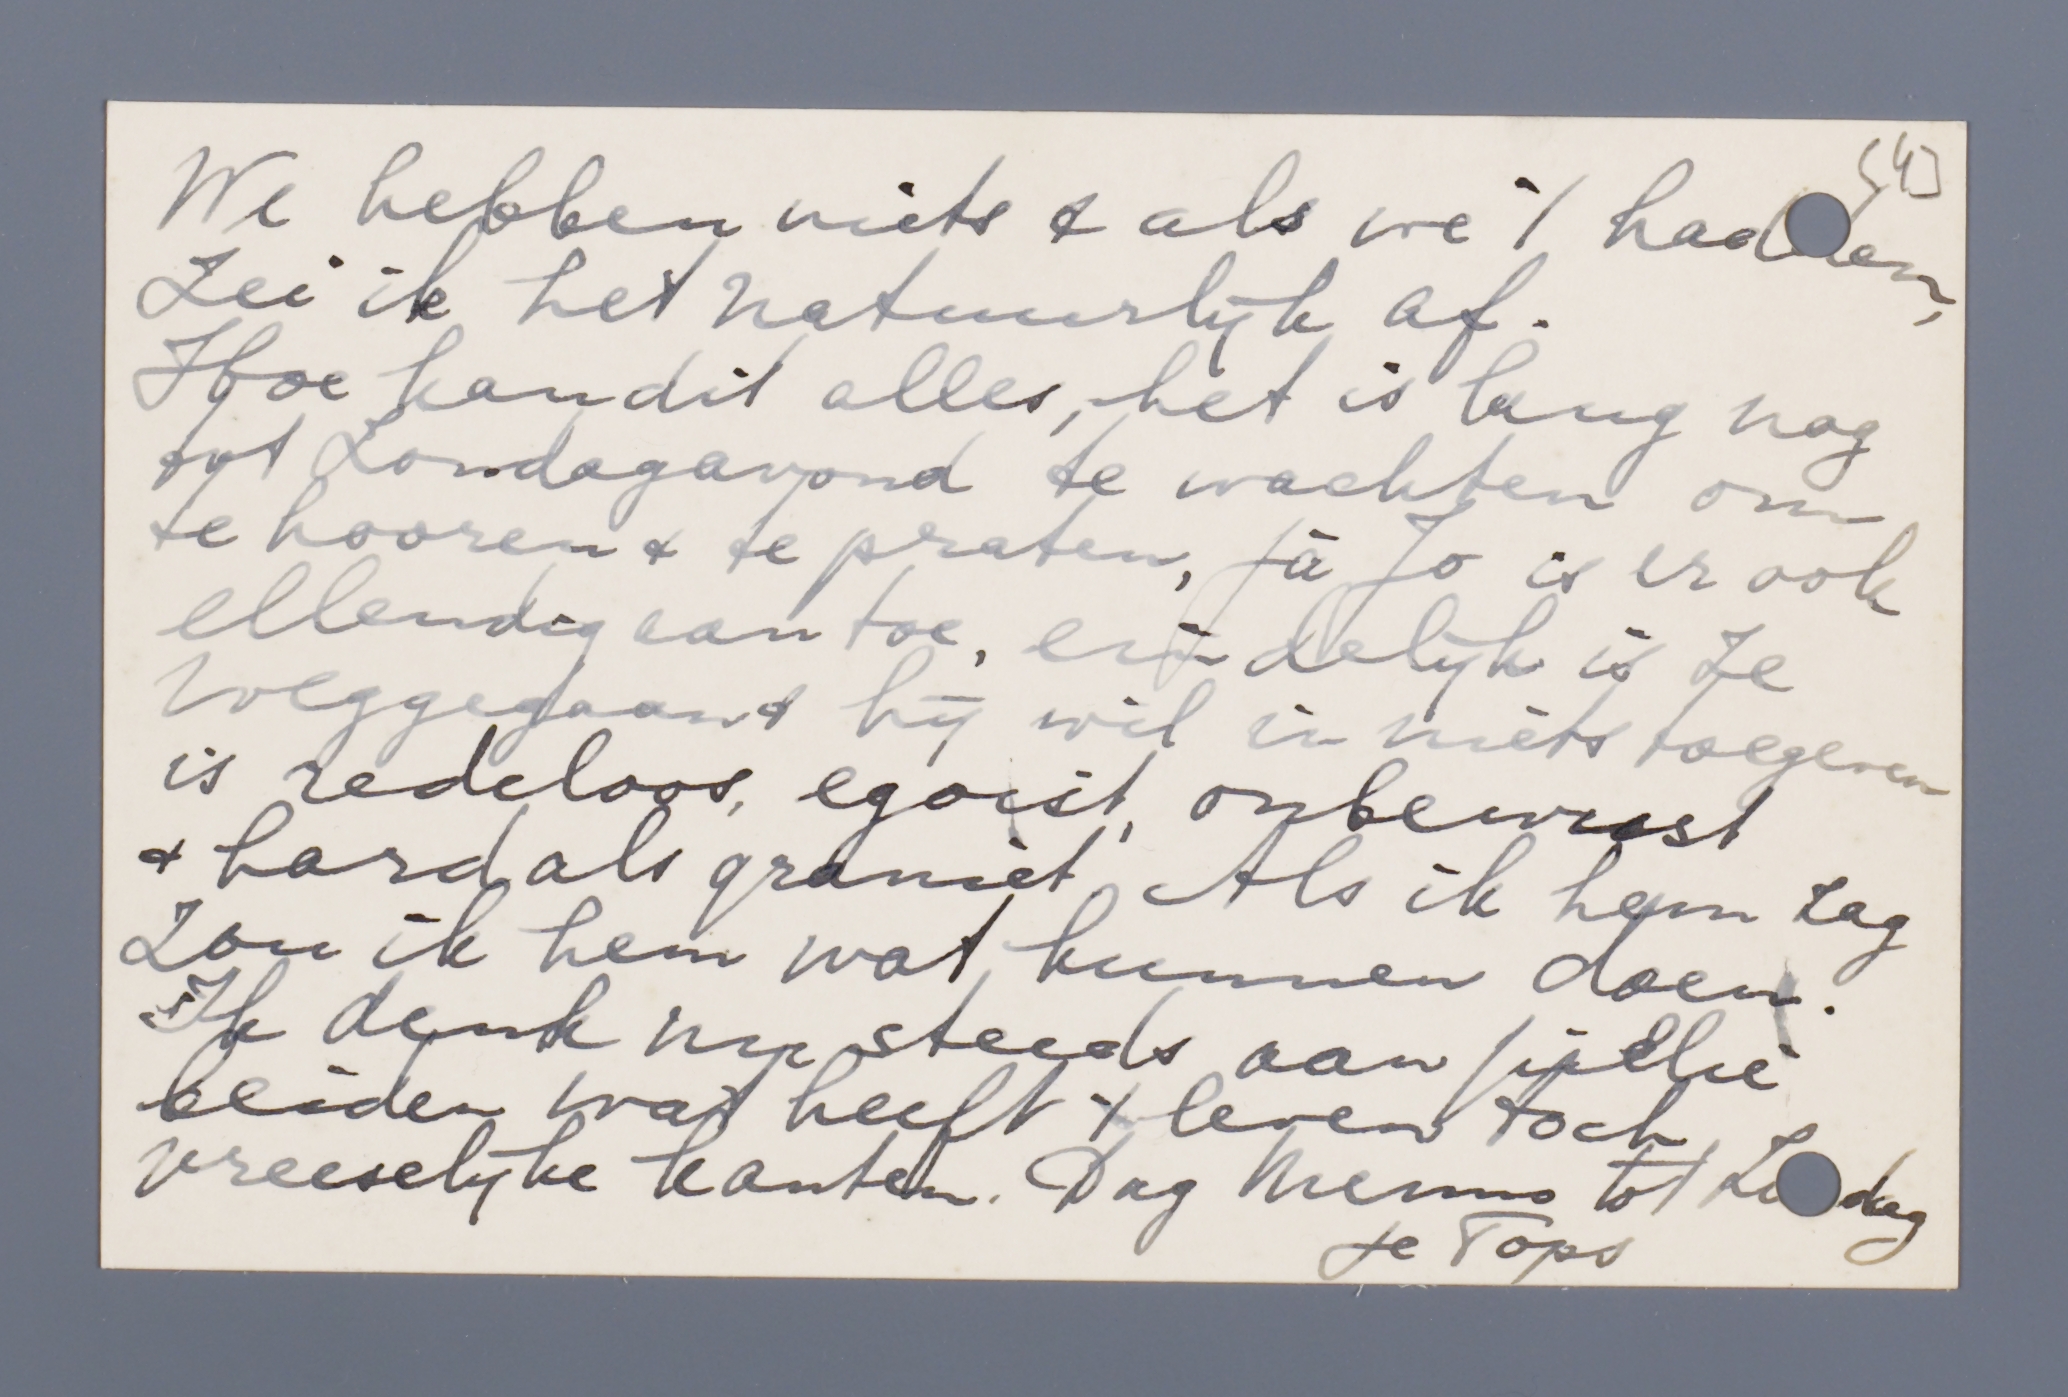 (4)
We hebben niets & als we 't hadden,
Zei ik het natuurlijk af.
Hoe kan dit alles, het is lang nog
tot Zondagavond te wachten om
te hooren & te praten, ja Jo is er ook
ellendig aan toe, eindelijk is ze
weggegaan & hij wil in niets toegeven
is redeloos, egoist, onbewust
& hard als graniet. Als ik hem zag
Zou ik hem wat kunnen doen.
Ik denk nu steeds aan jullie
beiden wat heeft 't leven toch
vreeselijke kanten. Dag Menno tot Zondag
Je Tops